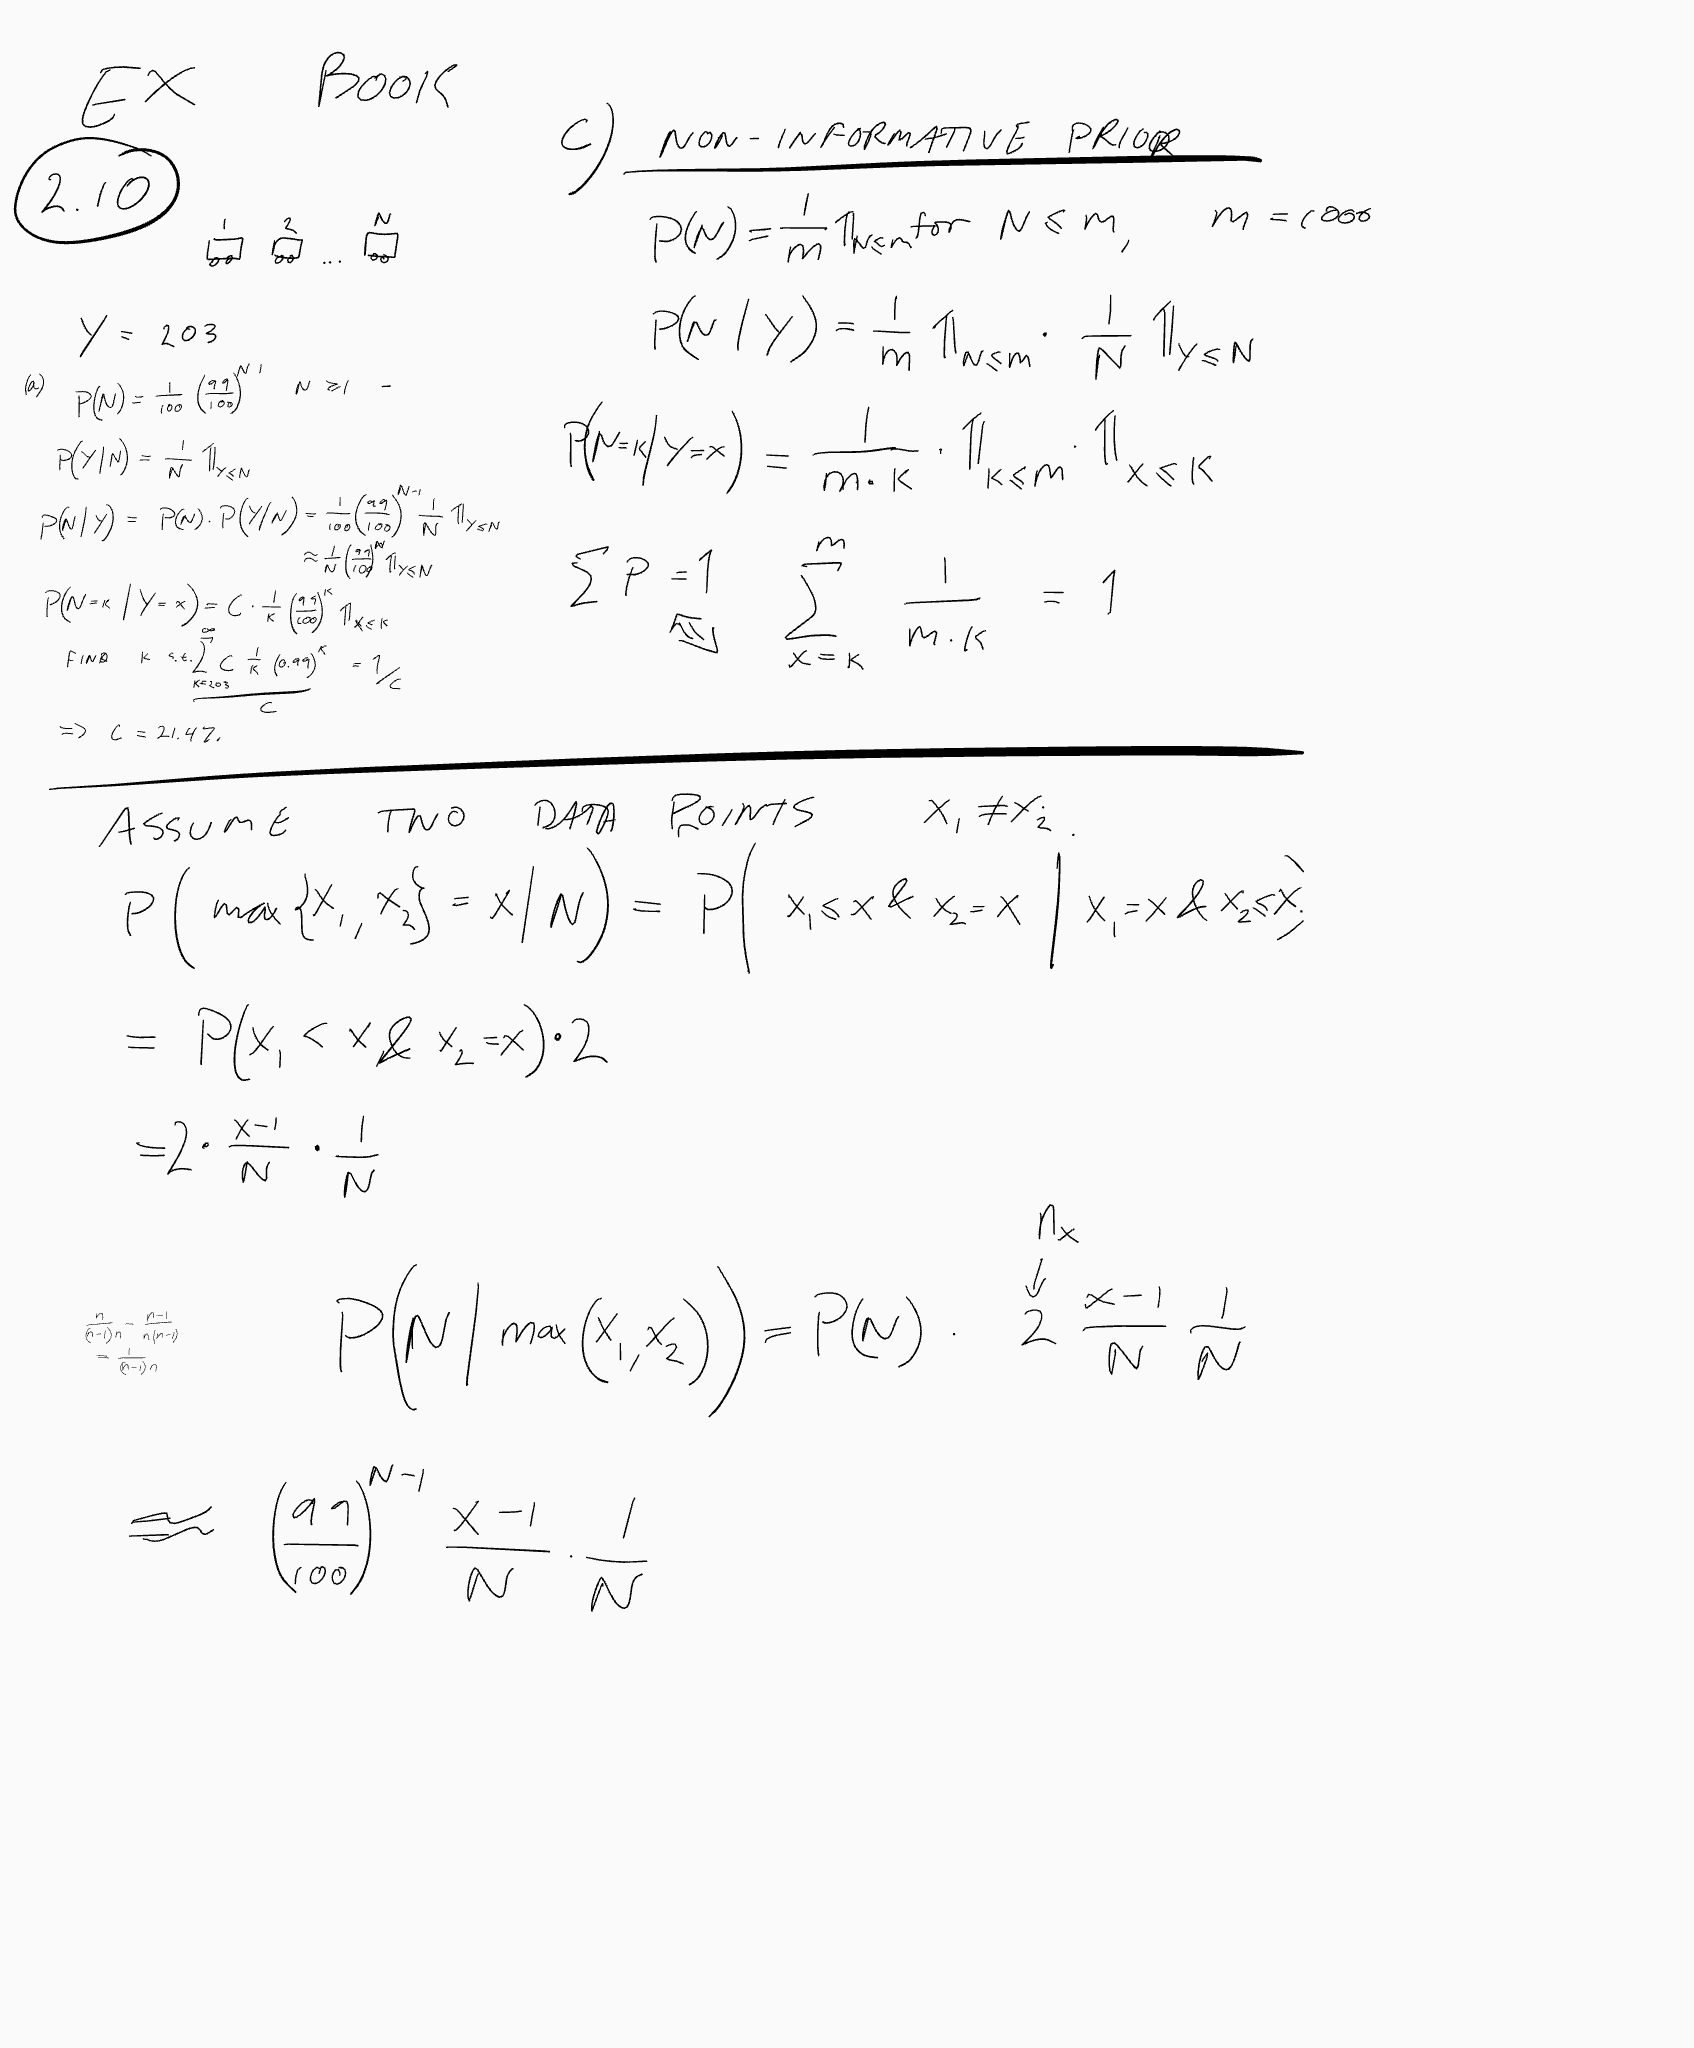 EX BOOK
2.10
1 2 ... N
Y = 203
(a) P(N) = 1/100 (99/100)^N-1 N ≥ 1 -
P(Y|N) = 1/N 𝟙_Y≤N
P(N|Y) = P(N) · P(Y|N) = 1/100 (99/100)^N-1 1/N 𝟙_Y≤N
≈ 1/N (99/100)^N 𝟙_Y≤N
P(N=K | Y=x) = C · 1/K (99/100)^K 𝟙_x≤K
FIND K s.t. ∑_K=203^∞ C 1/K (0.99)^K = 1/C
C
=> C = 21.47.
C) NON-INFORMATIVE PRIOR
P(N) = 1/m 𝟙_N≤m for N ≤ m, m = 1000
P(N|Y) = 1/m 𝟙_N≤m · 1/N 𝟙_Y≤N
P(N=K|Y=x) = 1/(m·K) · 𝟙_K≤m · 𝟙_x≤K
∑P = 1 ∑_x=K^m 1/(m·K) = 1
ASSUME TWO DATA POINTS X₁ ≠ X₂.
P(max{X₁, X₂} = X | N) = P(X₁ ≤ X & X₂ = X | X₁ = X & X₂ ≤ X)
= P(X₁ < X & X₂ = X) · 2
= 2 · (X-1)/N · 1/N
n_x
↓
P(N | max(X₁, X₂)) = P(N) · 2 (X-1)/N 1/N
n/((n-1)n) - (n-1)/(n(n-1))
= 1/((n-1)n)
≈ (99/100)^N-1 (X-1)/N · 1/N